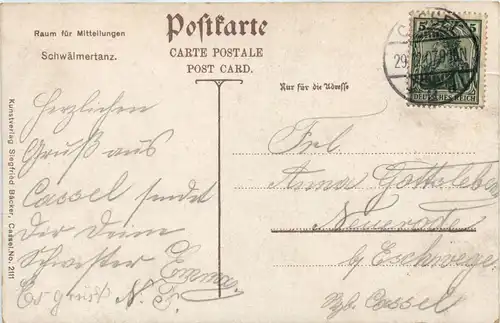 Raum für Mitteilungen
Schwälmertanz.
Postkarte
CARTE POSTALE
POST CARD.
Nur für die Adresse
5 5
DEUTSCHES REICH
Herzlichen
Gruß aus
Cassel sendet
Dir Deine
Schwester Emma
Es grüßt N. Fr.
Frl.
Anna Gottsleben
Neuerode
b. Eschwege
Bz. Cassel
Kunstverlag Siegfried Bäcker, Cassel. No. 2111